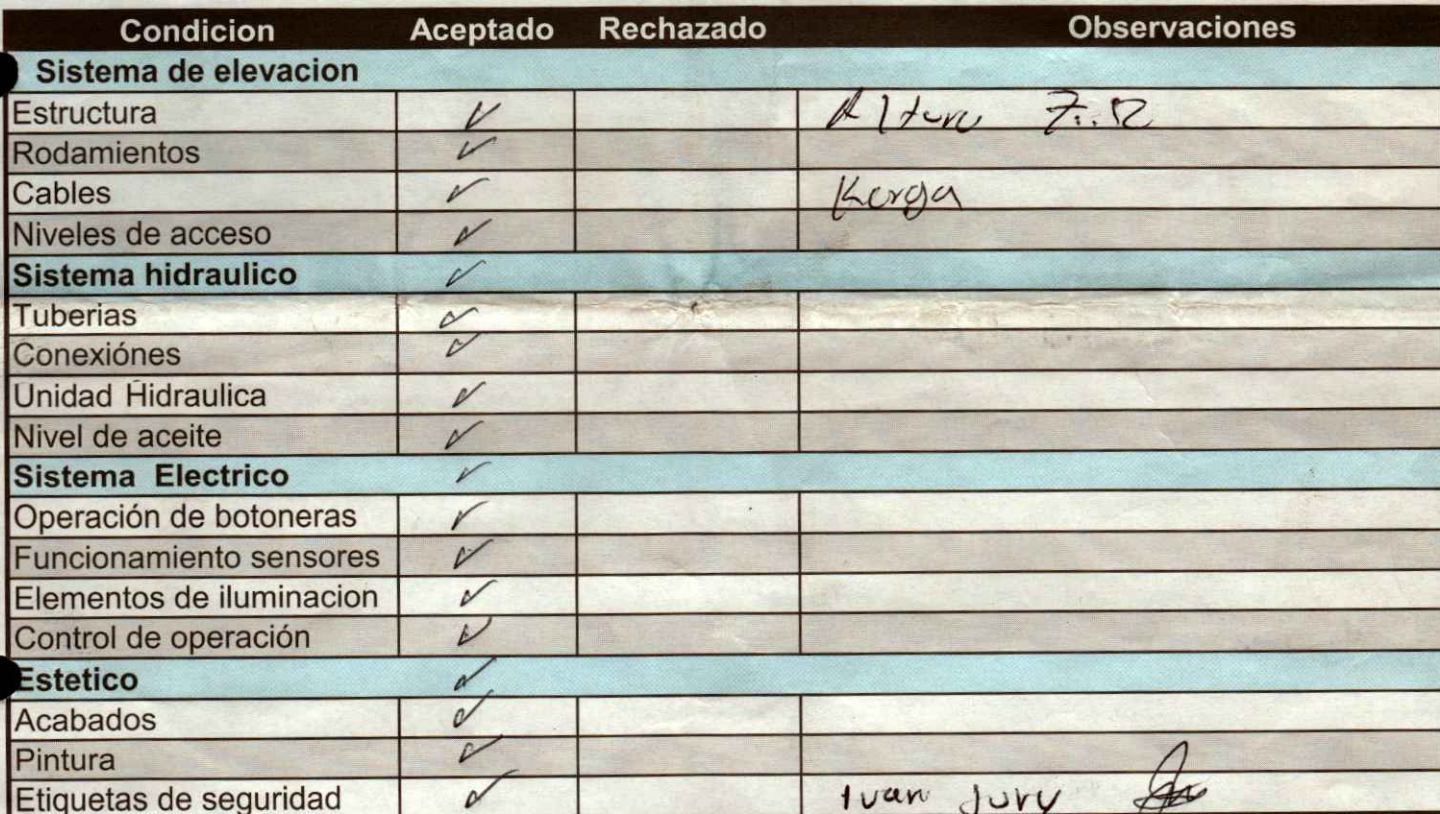 Condicion Aceptado Rechazado Observaciones
Sistema de elevacion
Estructura ✓
Rodamientos ✓
Cables ✓
Niveles de acceso ✓
Sistema hidraulico ✓
Tuberias ✓
Conexiónes ✓
Unidad Hidraulica ✓
Nivel de aceite ✓
Sistema Electrico ✓
Operación de botoneras ✓
Funcionamiento sensores ✓
Elementos de iluminacion ✓
Control de operación ✓
Estetico ✓
Acabados ✓
Pintura ✓
Etiquetas de seguridad ✓ Ivan